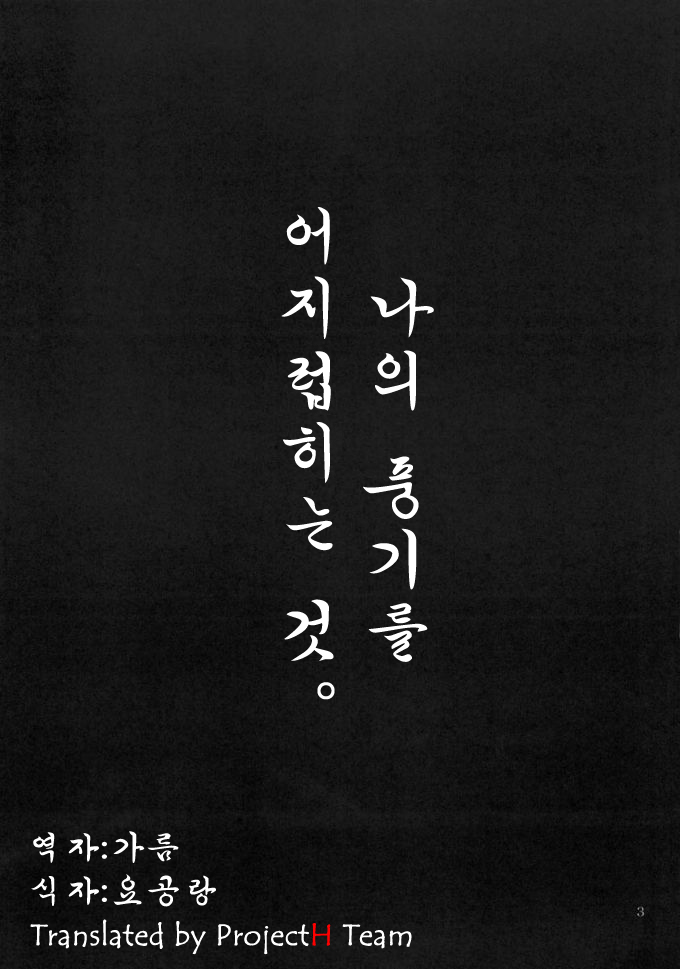 나의 풍기를
어지럽히는 것。
역 자:가름
식 자:요공랑
Translated by ProjectH Team
3